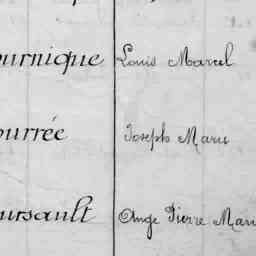 ournique Louis Marcel
ourrée Joseph Marie
oursault Ange Pierre Mari